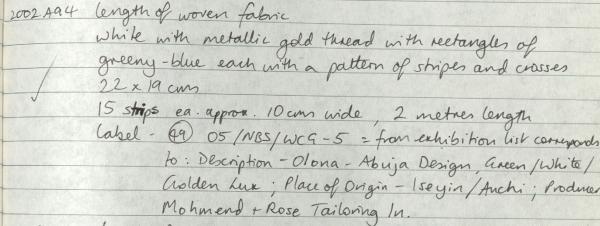 2002 A94 length of woven fabric
white with metallic gold thread with rectangles of
greeny-blue each with a pattern of stripes and crosses
22 x 19 cms
15 strips ea. approx. 10 cms wide, 2 metres length
Label - 49 05/NBS/WCG-5 = from exhibition list corresponds
to: Description - Olona - Abuja Design, Green/White/
Golden Lux; Place of Origin - Iseyin/Auchi; Producer
Mohmend + Rose Tailoring In.